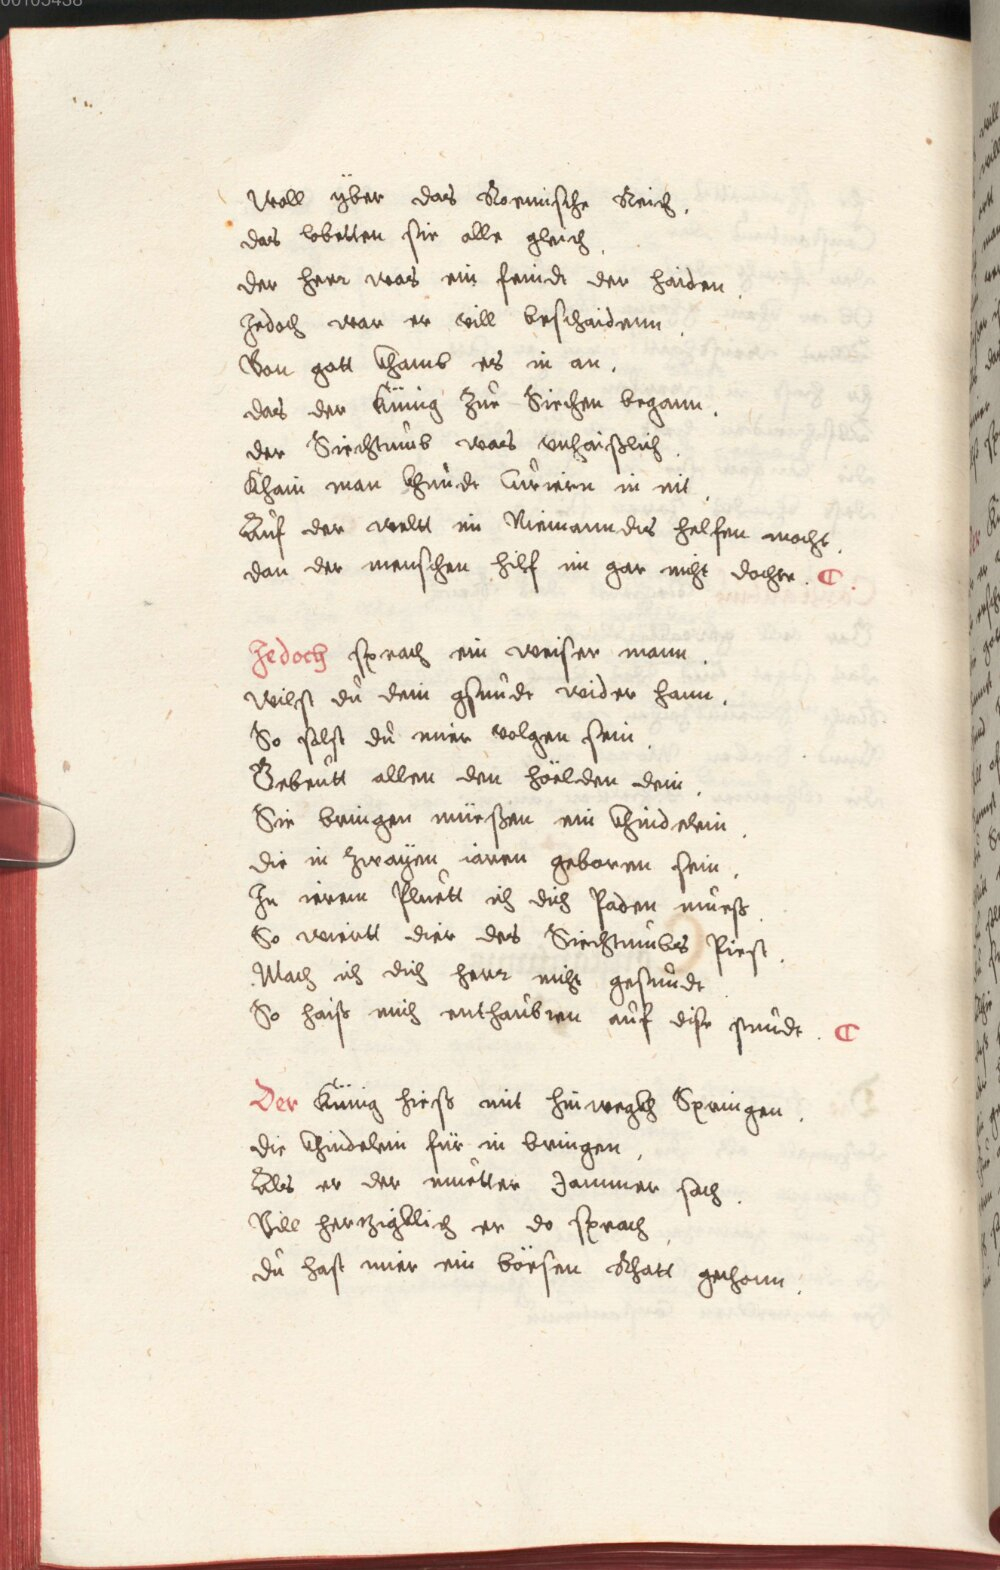 00105438
Woll yber das Roemische Reich.
das lobetten sie alle gleich.
der herr was ein feindt der haiden.
Jedoch war er vill beschaidenn.
Von gott khamb es in an.
das der Künig Zur Siechen begann.
der Siechtumb was vnhaißlich.
Khain man khundt Curiern in nit.
Auf der weltt im Niemanndts helfen mocht.
dan der menschen hilf im gar nicht dochte. C
Jedoch sprach ein weiser mann.
wilst du dein gsundt wider hann.
So solst du mier volgen sein.
Gebeutt allen den höelden dein.
Sie bringen müeßen ein khindelein.
die in Zwayen iaren geboren sein.
In ierem Pluett ich dich Paden mueß.
So wiertt dier des Siechtumbs Piest.
Mach ich dich herr nicht gesundt.
So haiß mich enthaubten auf dise stundt. C
Der Künig hieß mit hinwegkh Springen.
die khindelein für in bringen.
Als er der muetter Jammer sach.
Vill hertzigklich er do sprach.
du hast mier ein böesen Rhatt gethonn.